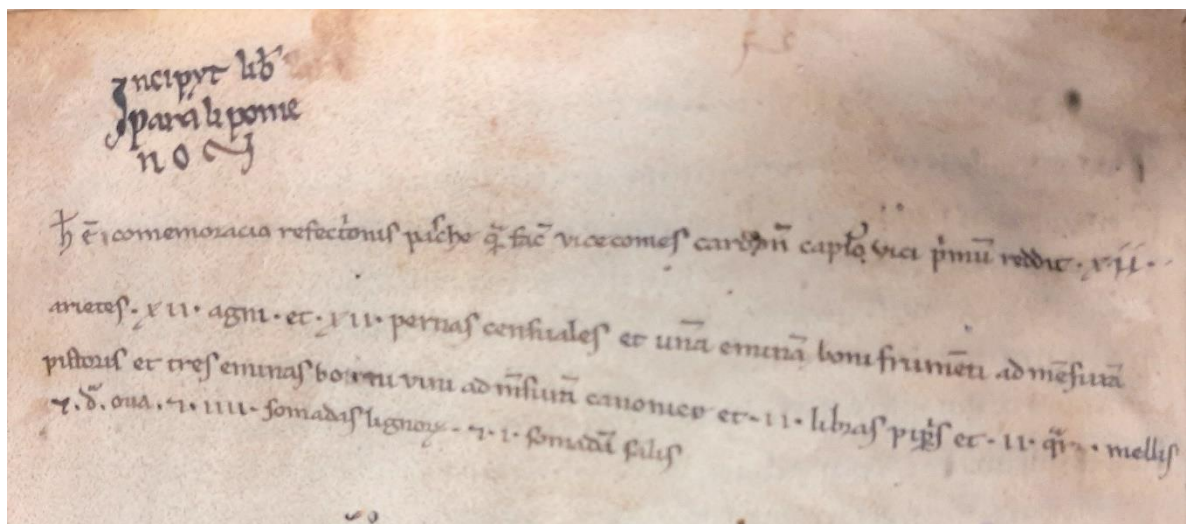 Incipyt lib̅
paralipome
no
h̅ ē comemoracio refectionis pasche q̄ fac̄ vicecomes cardon̄ vici p̄mū reddit · xii ·
arietes · xii · agni · et · xii · pernas censuales et unā eminā boni frumēti ad mēsurā
pistoris et tres eminas boni vini ad m̄surā canonico et · ii · libras pip̄is et · ii · mellis
⁊ · d̄ · oua · ⁊ · iiii · somadas lignoꝝ · ⁊ · i · somadā salis